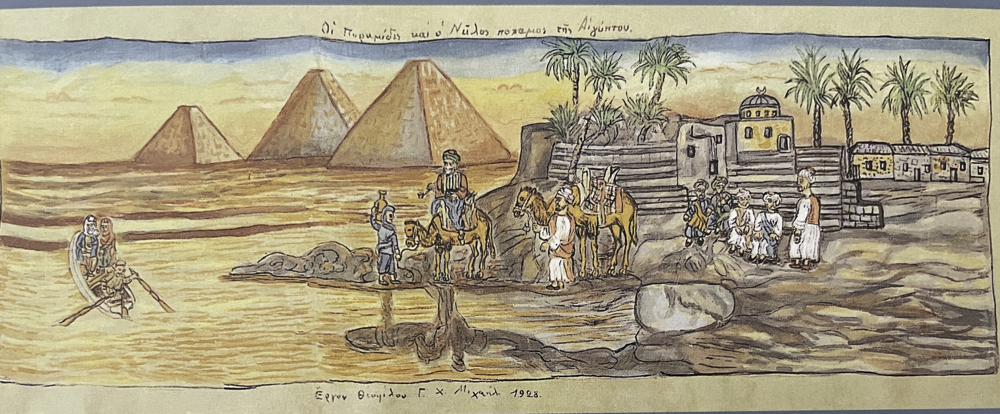 Οἱ Πυραμίδες καί ὁ Νεῖλος ποταμος τῆς Αἰγύπτου.
Ἔργον Θεοφίλου Γ. Χ. Μιχαήλ 1928.